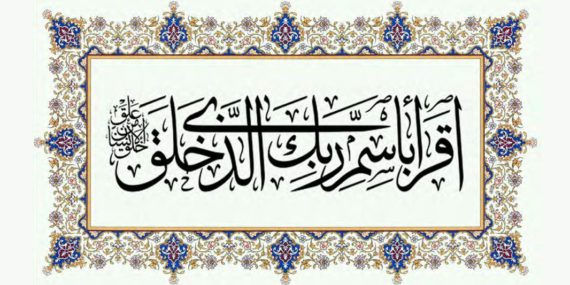 اقرأ باسم ربك الذى خلق
خلق الانسان من علق